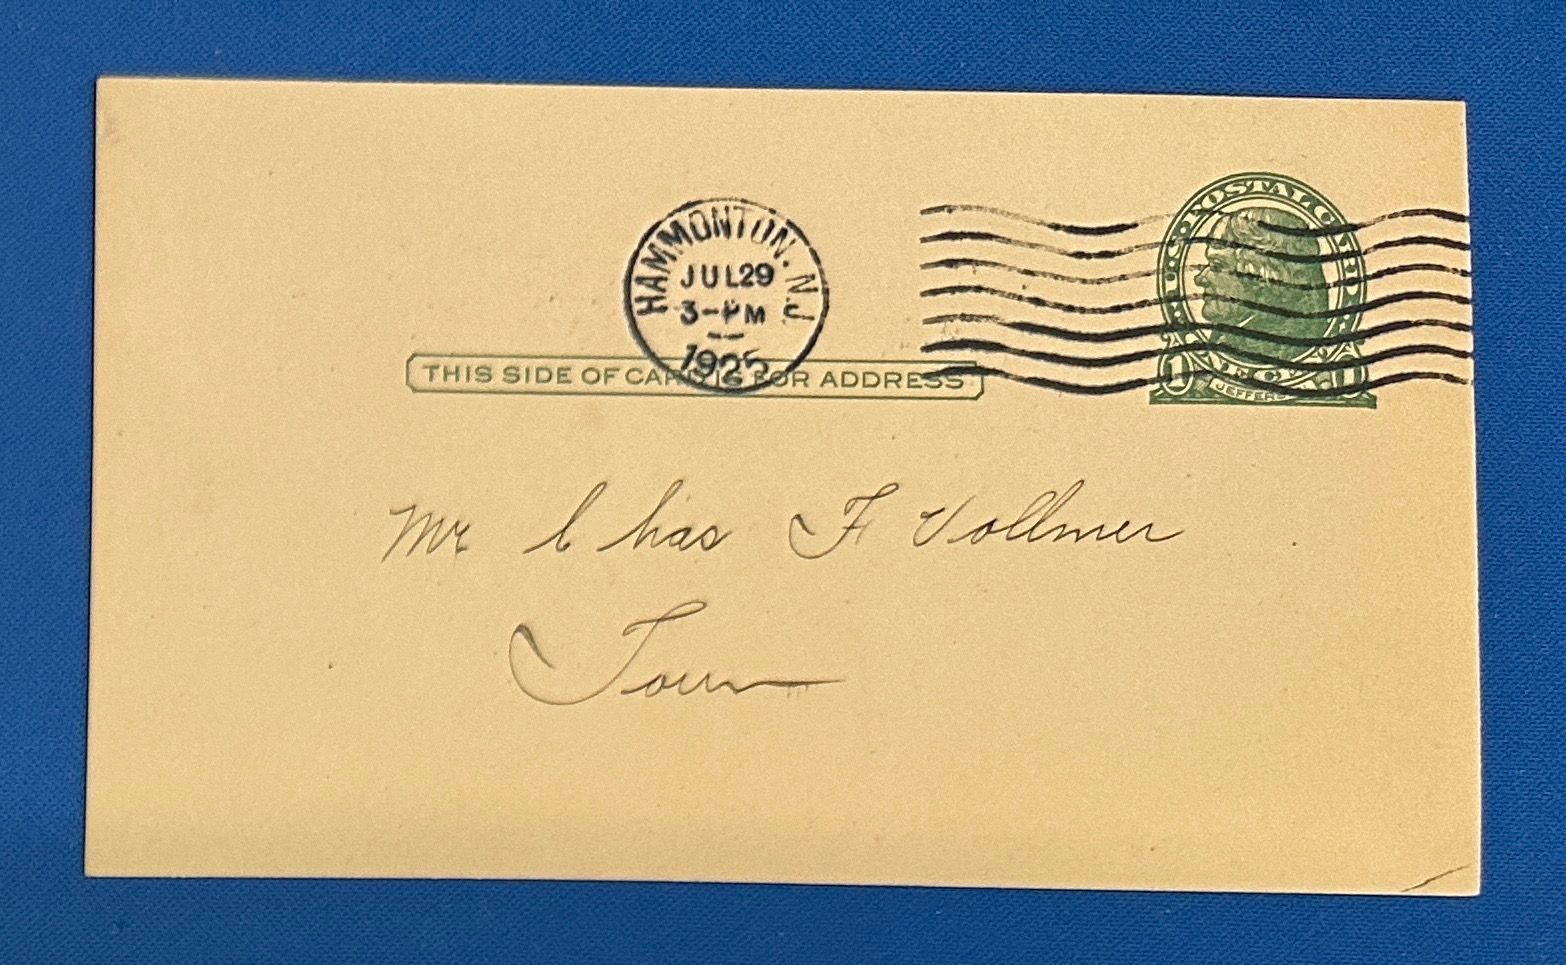 U.S. POSTAL CARD
HAMMONTON. N.J.
JUL 29
3-PM
1925
THIS SIDE OF CARD IS FOR ADDRESS
1 CENT 1
JEFFERSON
Mr Chas F Vollmer
Town